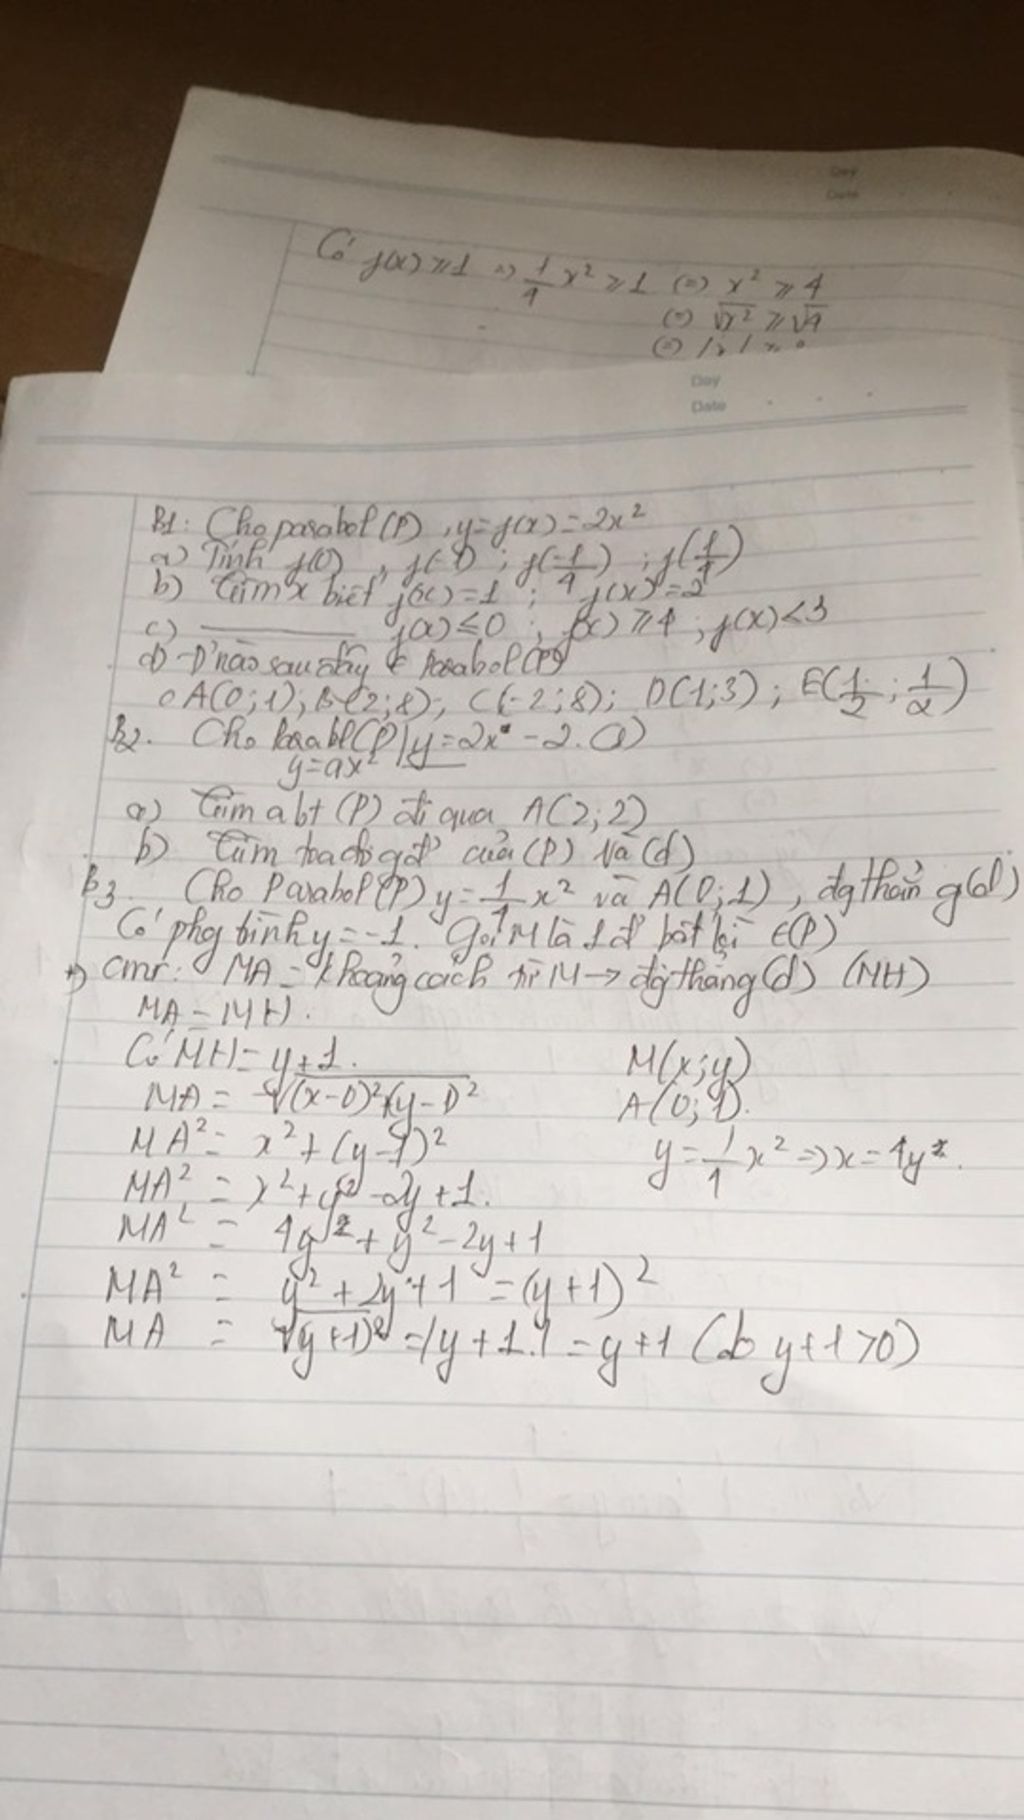 Day
Date
Có f(x) ≥ 1 => 1/4 x² ≥ 1 (=) x² ≥ 4
(=) √x² ≥ √4
(=) |x|
Day
Date
B1: Cho parabol (P), y = f(x) = 2x²
a) Tính f(0), f(-1); f(-1/4); f(1/4)
b) Tìm x biết f(x) = 1; f(x) = 2
c) ______ f(x) ≤ 0; f(x) ≥ 4; f(x) < 3
d) Đ' nào sau đây ∈ Parabol (P)
A(0;1); B(2;8); C(-2;8); D(1;3); E(1/2; 1/2)
B2. Cho Parabl (P) | y = 2x - 2. (d)
y = ax²
a) Tìm a bt (P) đi qua A(2;2)
b) Tìm toạ độ gđ' của (P) và (d)
B3. Cho Parabol (P) y = 1/4 x² và A(0;1), đg thẳng (d)
Có phg tình y = -1. Gọi M là 1 đ' bất kì ∈ (P)
*) cmr: MA = khoảng cách từ M → đg thẳng (d) (MH)
MA = MH.
Có MH = y + 1. M(x;y)
MA = √(x-0)²+(y-1)² A(0;1).
MA² = x² + (y-1)² y = 1/4 x² => x = 4y
MA² = x² + y² - 2y + 1.
MA² = 4y + y² - 2y + 1
MA² = y² + 2y + 1 = (y+1)²
MA = √(y+1)² = |y + 1| = y + 1 (do y + 1 > 0)